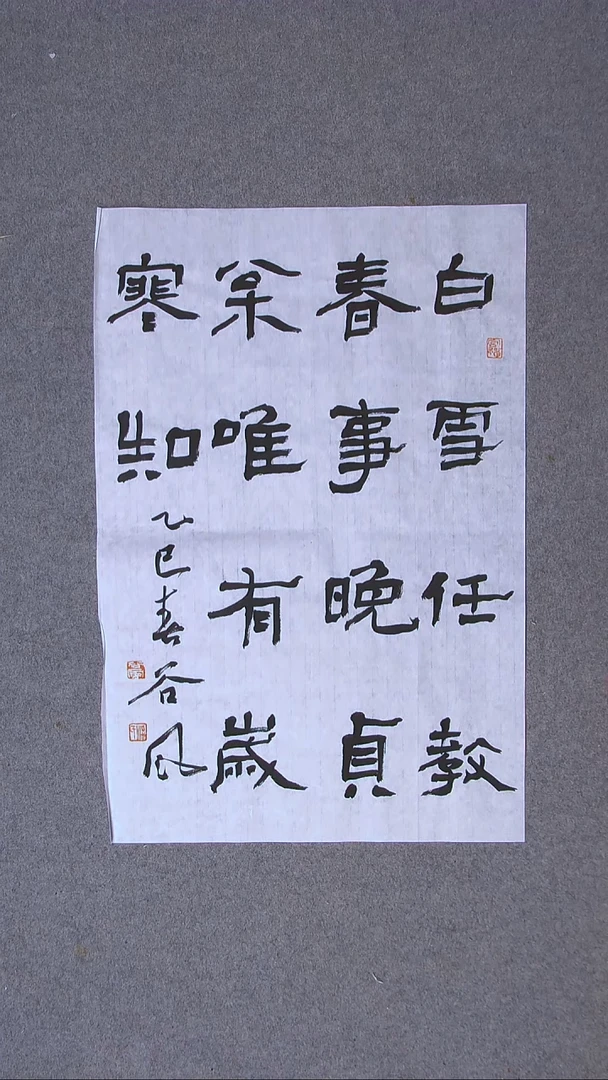 白雪任教
春事晚貞
枀唯有嵗
寒知
乙巳春谷風